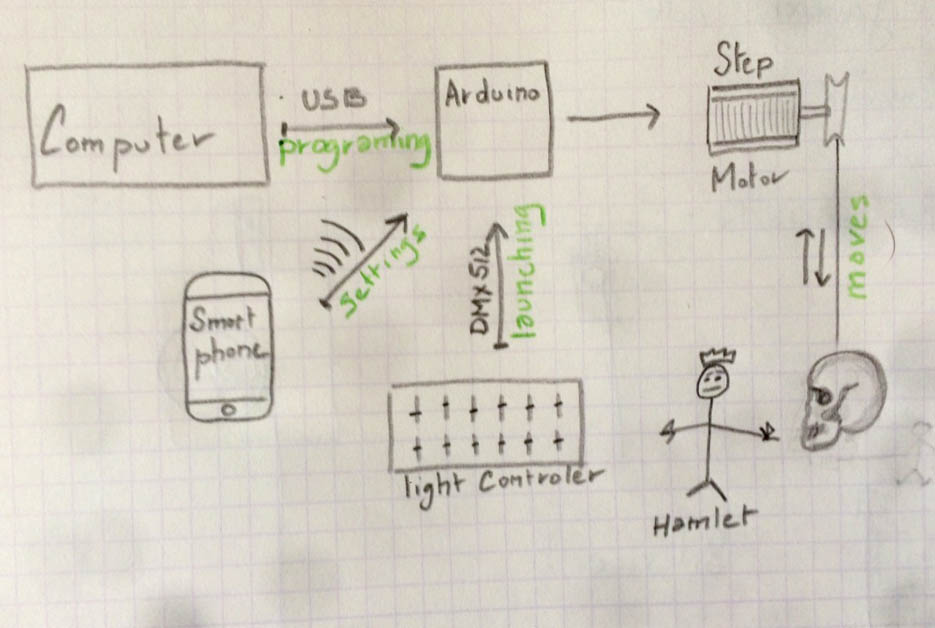 Computer
USB
programing
Arduino
Step
Motor
Settings
DMX512
launching
moves
Smart
phone
light Controler
Hamlet